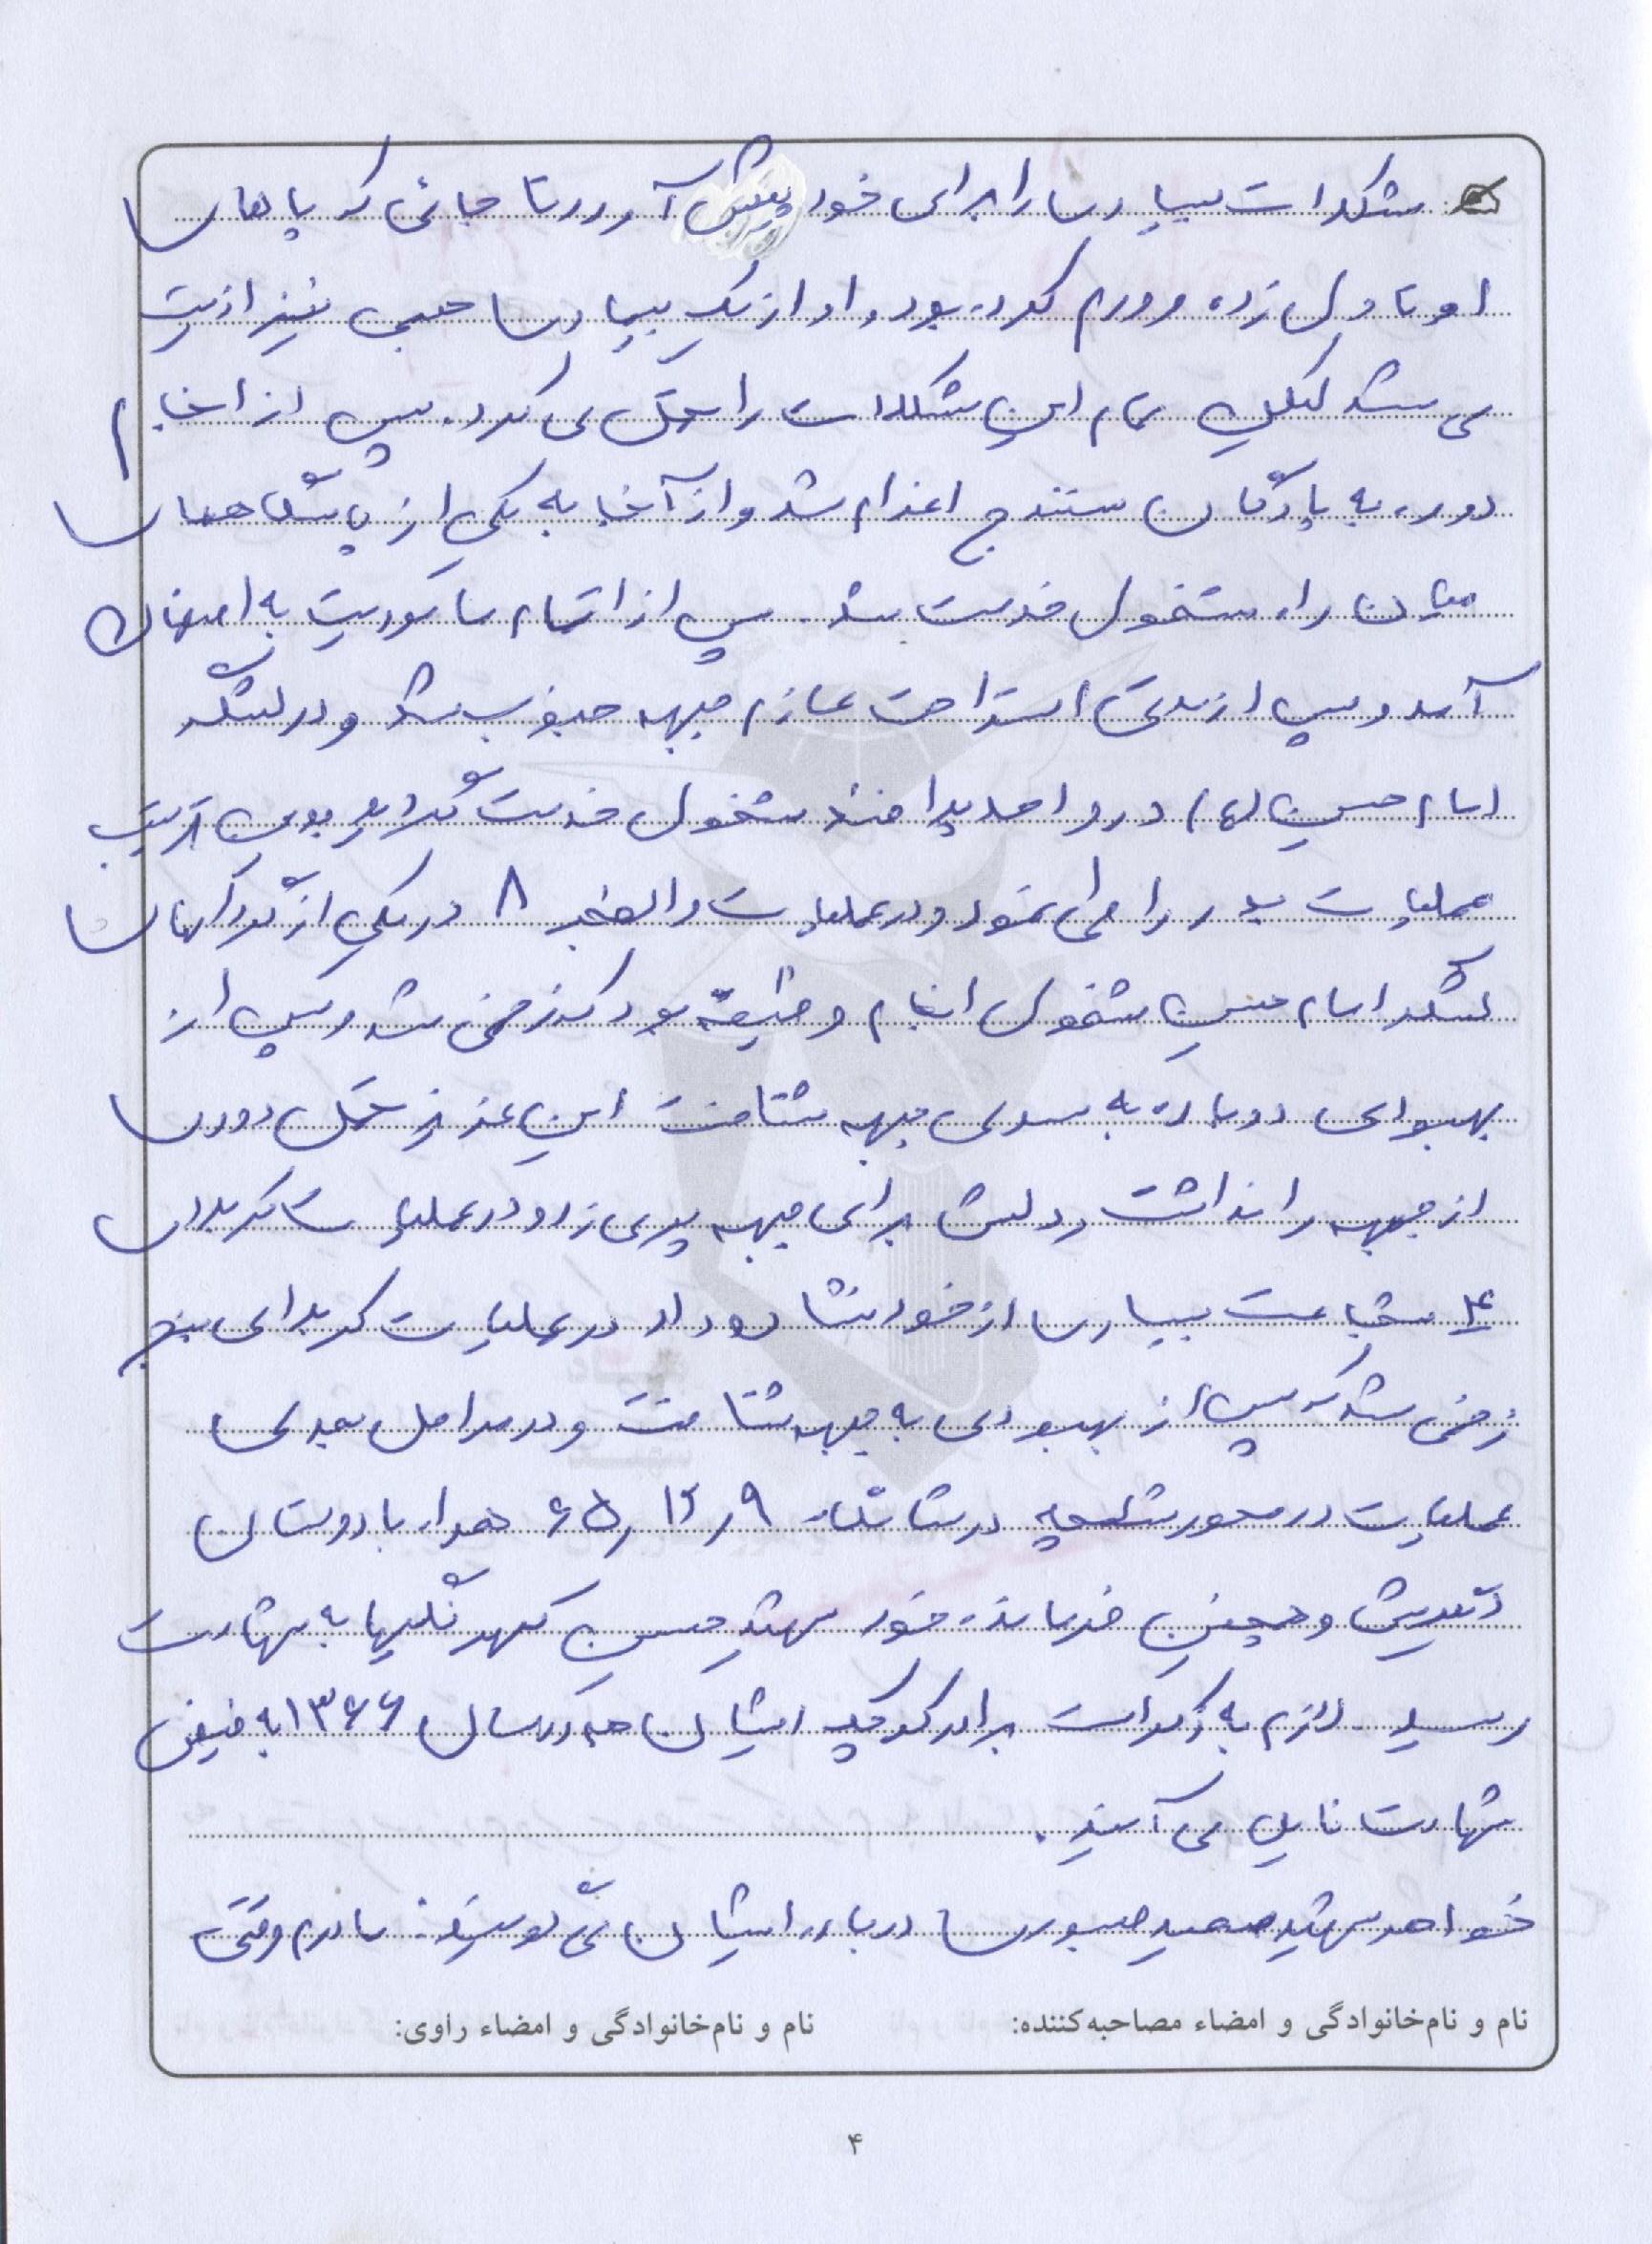 مشکلات بسیاری را برای خود پیش آورد تا جائی که پاهای
او تاول زده و ورم کرده بود و او از یک بیماری عصبی نیز اذیت
می شد لیکن تمام این مشکلات را تحمل می کرد. پس از انجام
دوره به پادگان سنندج اعزام شد و از آنجا به یکی از پاسگاههای
میان راه مشغول خدمت شد. پس از اتمام ماموریت به اصفهان
آمد و پس از مدتی استراحت عازم جبهه جنوب شد و در لشگر
امام حسین (ع) در واحد پدافند مشغول خدمت گردید بدین ترتیب
عملیات بدر را طی نمود و در عملیات والفجر ۸ در یکی از گردانهای
لشگر امام حسین مشغول انجام وظیفه بود که زخمی شد و پس از
بهبودی دوباره به سوی جبهه شتافت این عزیز تحمل دوری
از جبهه را نداشت و دلش برای جبهه پر می زد و در عملیات کربلای
۴ شجاعت بسیاری از خود نشان داد در عملیات کربلای پنج
زخمی شد که پس از بهبودی به جبهه شتافت و در مراحل بعدی
عملیات در محور شلمچه در شامگاه ۹ر۱۲ر۶۵ همراه با دوستان
قدیمیش و همچنین فرمانده خود شهید حسین کهرنگیها به شهادت
رسید. لازم به ذکر است برادر کوچک ایشان هم در سال ۱۳۶۶ به فیض
شهادت نایل می آیند.
خواهر شهید صبوری درباره ایشان می نویسند: مادرم وقتی
نام و نام‌خانوادگی و امضاء مصاحبه‌کننده: نام و نام‌خانوادگی و امضاء راوی:
۴